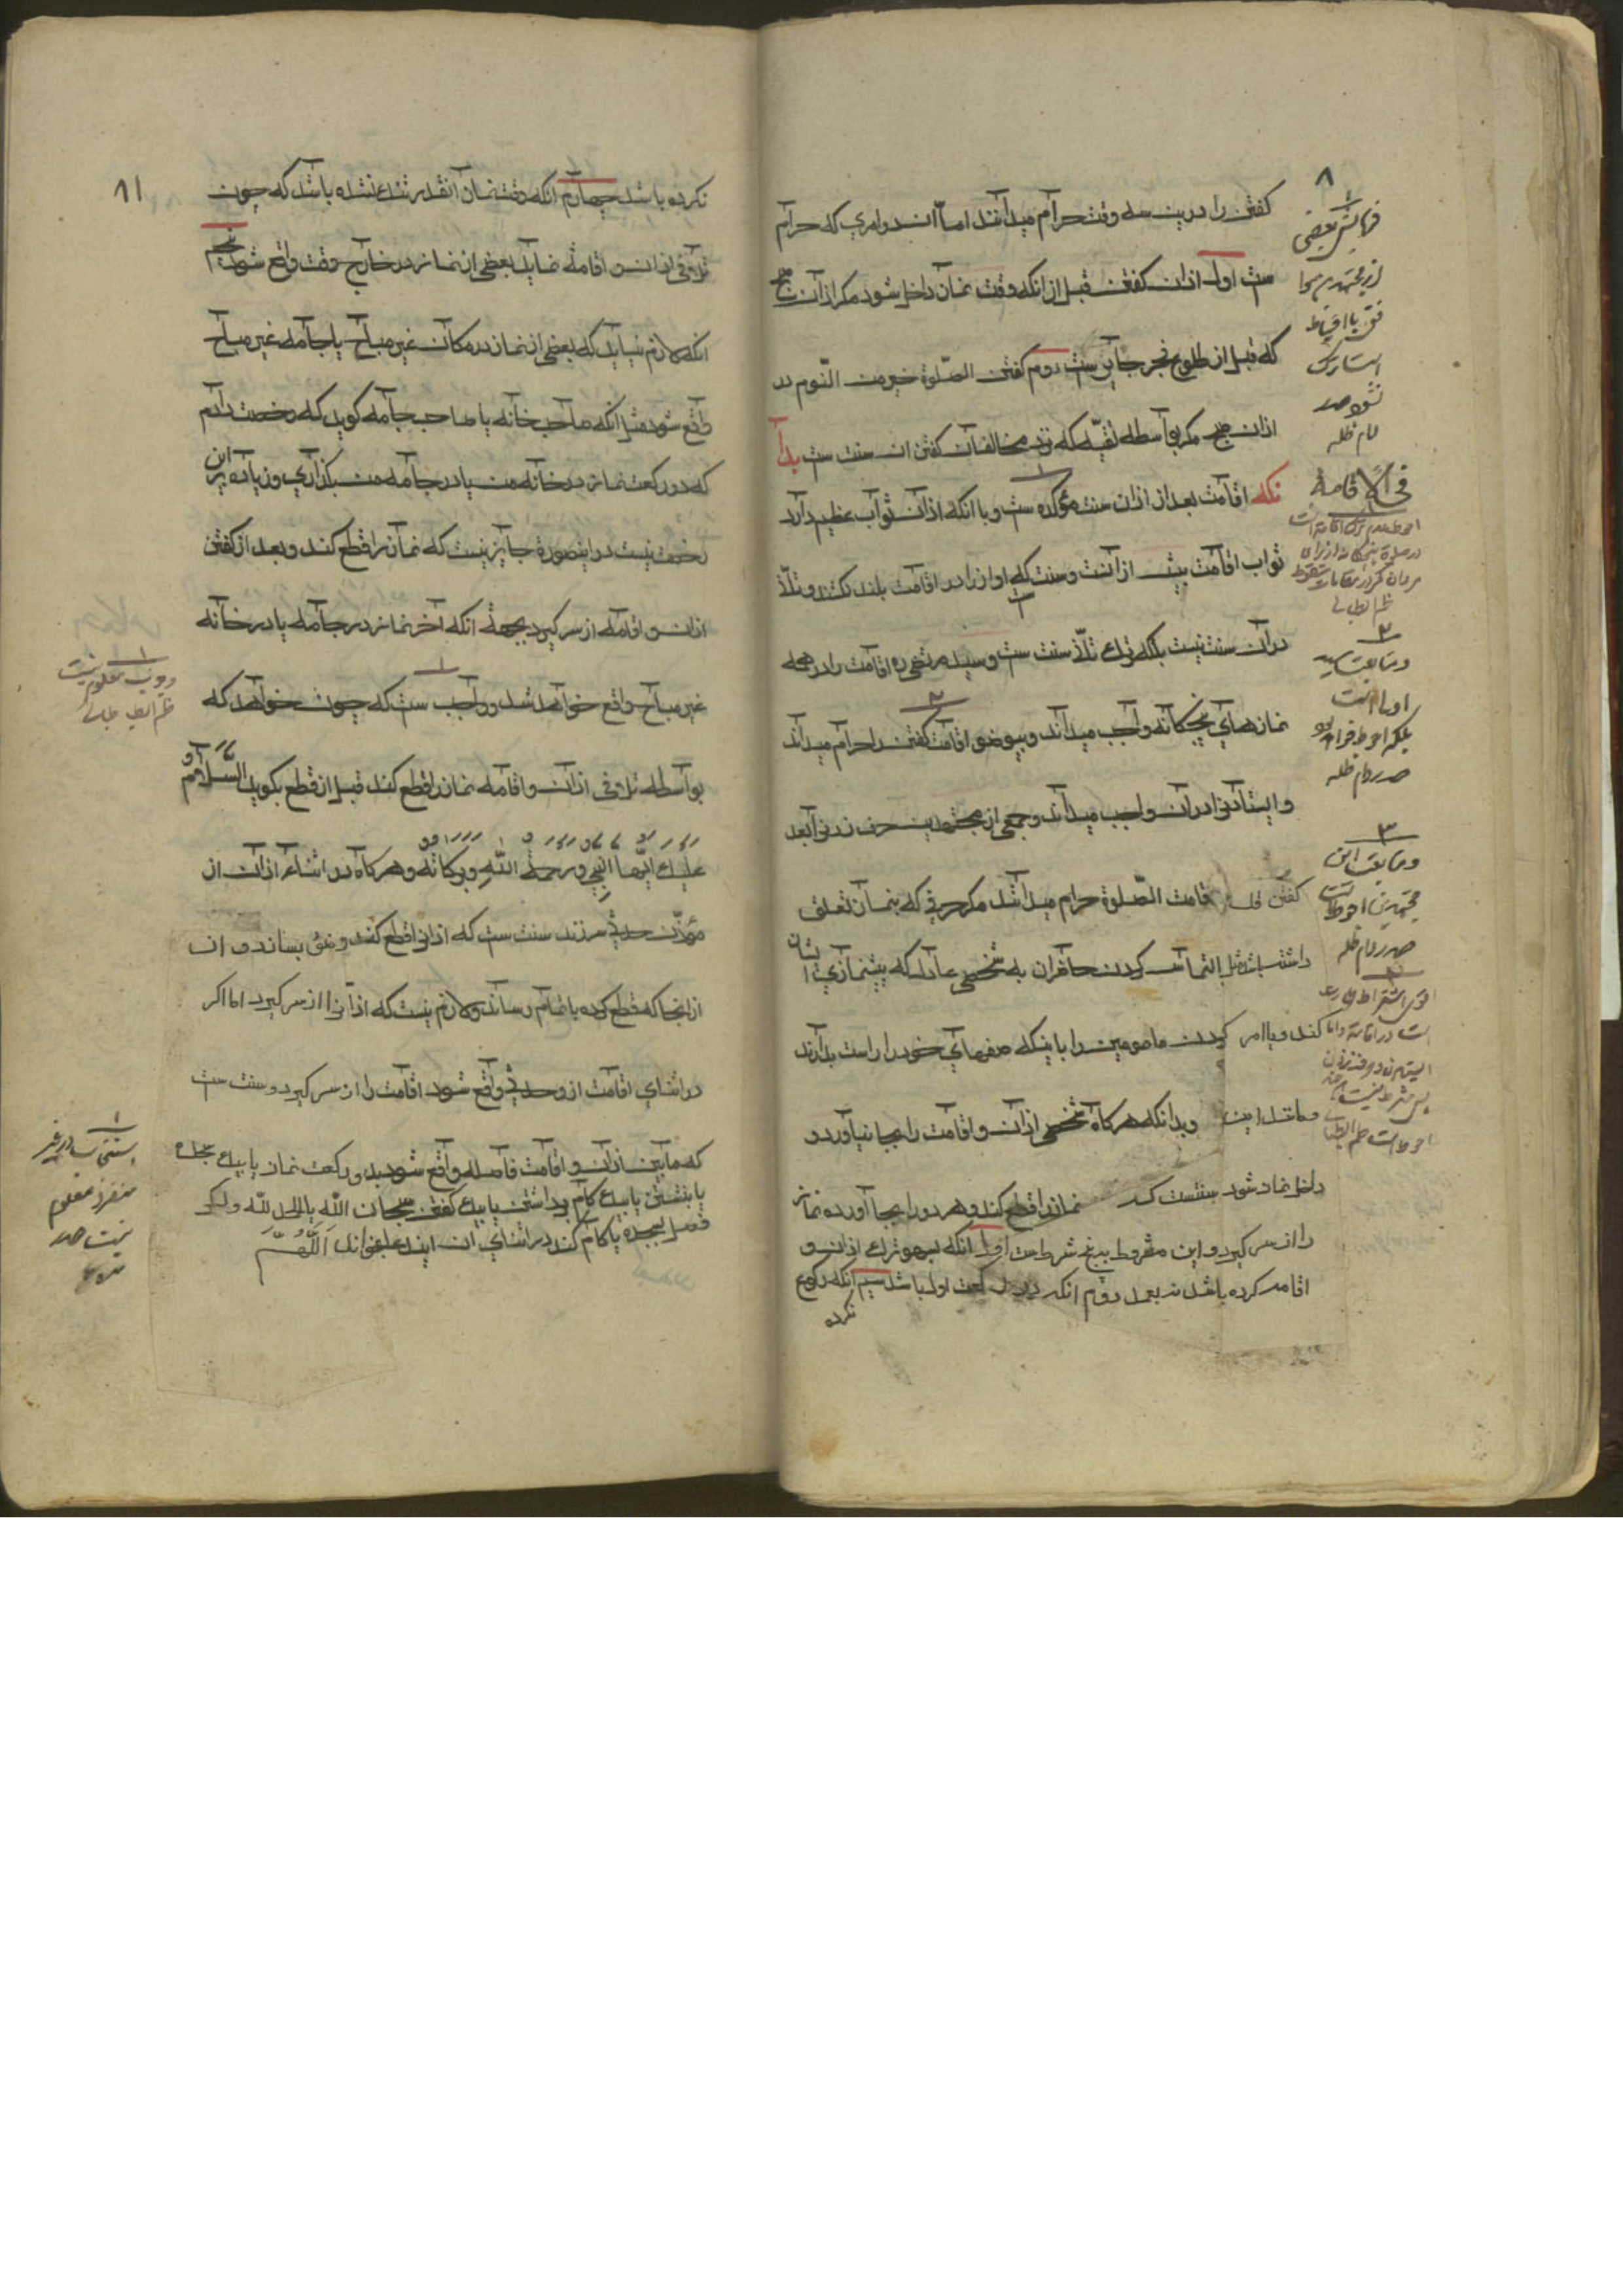 کفتن را درین سه وقت حرام میدانند اما آن دو امری که حرام
ست اول اذان کفتن قبل از انکه وقت نماز داخل شود مکر اذان صبح
که قبل از طلوع فجر جایز ست دوم کفتن الصّلوة خیر من النّوم در
اذان صبح مکر بواسطه تقیّه که نزد مخالفان کفتن ان سنت ست بدا
نکه اقامت بعد از اذان سنت موکده ست و با انکه اذان ثواب عظیم دارد
ثواب اقامت بیش از آنست و سنت که اواز را در اقامت بلند نکند و تلذّ
در ان سنت نیست بلکه ترک تلذّ سنت ست و سید مرتضی ره اقامت را در همه
نمازهای پنجکانه واجب میداند و بیوضو اقامت کفتن را حرام میداند
و ایستادن را در ان واجب میداند و جمعی از مجتهدین حرف زدن را بعد
کفتن قد قامت الصّلوة حرام میدانند مکر حرفی که بنماز تعلق
داشته باشد مثل التماس کردن حاضران به شخصی عادل که پیشنمازی ایشان
کند و یا امر کردن مامومین را باینکه صفهای خود را راست بدارند
و مانند این و بدانکه هرکاه شخصی اذان و اقامت را بجا نیاورد و
داخل نماز شود سنتست که نماز را قطع کند و هر دو را بجا آورده نماز
را از سر کیرد و این مشروط بپنج شرط ست اول انکه بسهو ترک اذان و
اقامه کرده باشد نه بعمد دوم انکه در رکعت اول باشد سیم انکه رکوع
نکرده
۸
فرمایش بعضی
از مجتهدین موا
فق با احتیاط
است ترک
نشود صدر
دام ظله
فی الاقامة
۳
و متابعت سید
اولی است
بلکه احوط
صدر دام ظله
۳
و متابعت این
مجتهدین احوط است
صدر دام ظله
نکرده باشد چهارم انکه وقت نماز آنقدر تنک نشده باشد که چون
تلافی اذان و اقامه نماید بعضی از نماز در خارج وقت واقع شود پنجم
انکه لازم نیاید که بعضی از نماز در مکان غیر مباح یا جامه غیر مباح
واقع شود مثل انکه صاحب خانه یا صاحب جامه کوید که رخصت دادم
که دو رکعت نماز در خانه من یا در جامه من بکذاری و زیاده بر این
رخصت نیست در اینصورة جایز نیست که نماز را قطع کند و بعد از کفتن
اذان و اقامه از سر کیرد بجهة انکه آخر نماز در جامه یا در خانه
غیر مباح واقع خواهد شد و واجب ست که چون خواهد که
بواسطه تلافی اذان و اقامه نماز را قطع کند قبل از قطع بکوید السَّلَامُ
عَلَیْكَ اَیُّهَا النَّبِیُّ وَرَحْمَةُ اللّهِ وَبَرَکَاتُهُ و هرکاه در اثناء اذان از
مؤذّن حدث سر زند سنت ست که اذان را قطع کند و وضو بسازد و اذان
از انجا که قطع کرده باتمام رساند و لازم نیست که اذان را از سر کیرد اما اکر
در اثنای اقامت از و حدث واقع شود اقامت را از سر کیرد و سنت ست
که مابین اذان و اقامت فاصله واقع شود بدو رکعت نماز یا بیک سجده
یا بنشستن یا بیک کام برداشتن یا بیک کفتن سبحان اللّه یا الحمد للّه و اکر
فصل بسجده یا کام کند در اثنای ان این دعا بخواند اَللّهُمَّ
۱۱
۱
وجوب معلوم نیست
۱
استحباب در غیر
منفرد معلوم
نیست صدر